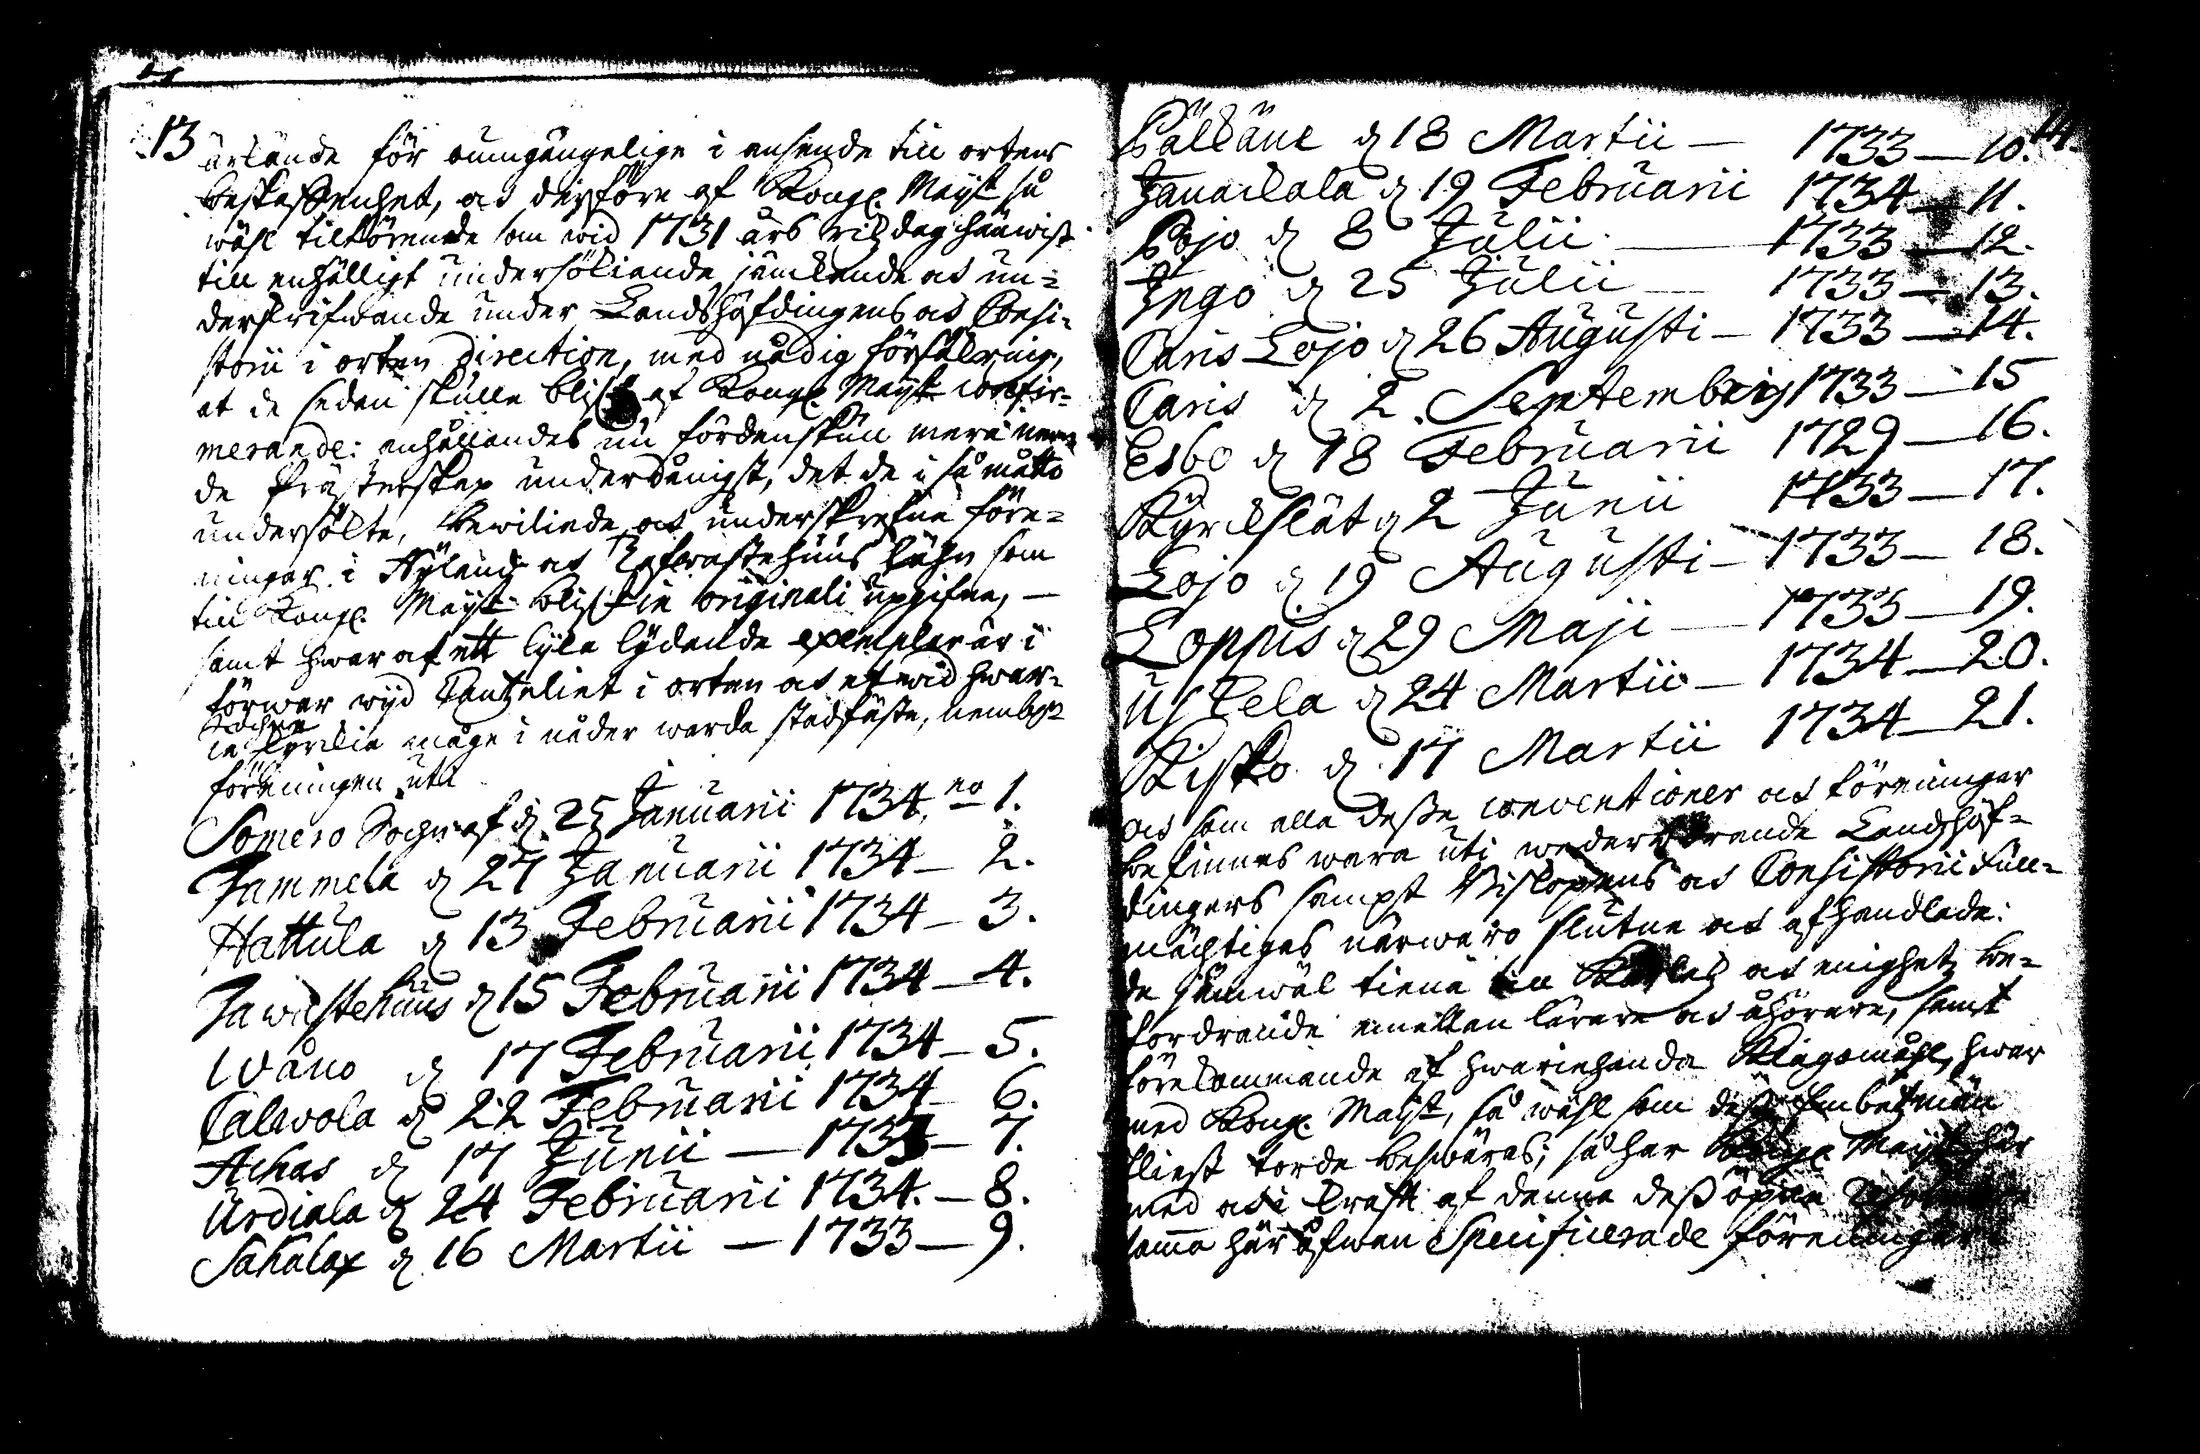 13
ärkände för oumgängelige i anseende till ortens
beskaffenhet, as derföre af Kongl. Mayst så
wähl tilkörende som wid 1731 års rikzdag hänwist
till enhälligt undersökiande, jämkande as un=
derskrifwande under Landshöfdingens as Consi=
storii i orten direction, med nådig försäkring,
at de sedan skulle blifwa af Kongl. Mayst confir=
merande: anhållandes nu fördenskull mera
de Prästerskap underdånigst, det de i så måtto
undersökte, bewiliade as underskrefne före=
ningar i Nyland as Tafwastehuus Lähn som
till Kongl. Mayst blifwit in originali upgifne, —
samt hwar af ett lyka lydande exemplar är i
förwar wyd Cantzeliet i orten as et wid hwar=
Sochne
ie Kyrckia måge i nåder warda stadfäste, nembl:
föreningen uti
Somero Sochn af d. 25 Januarii 1734. no 1.
Tammela d 27 Januarii 1734 — 2.
Hattula d 13 Februarii 1734 — 3.
Tawastehuus d 15 Februarii 1734 — 4.
Wåno d 17 Februarii 1734 — 5.
Calwola d 22 Februarii 1734 — 6.
Achas d 17 Junii — 1733 — 7.
Urdiala d 24 Februarii 1734. — 8.
Sahalax d 16 Martii — 1733 — 9.
14.
Pälkäne d 18 Martii — 1733 — 10.
Janackala d 19 Februarii 1734 — 11.
Pojo d 8 Julii. — 1733 — 12.
Ingo d 25 Julii — 1733 — 13.
Caris Lojo d 26 Augusti — 1733 — 14.
Caris d 2. Septembris 1733 — 15
Esbo d 18 Februarii 1729 — 16.
Kyrckslät d 2 Junii 1733 — 17.
Lojo d. 19 Augusti — 1733 — 18.
Loppis d 29 Maji — 1733 — 19.
Uskela d 24 Martii — 1734 — 20.
Kisko d 17 Martii 1734 — 21.
as som alla desse conventioner as föreningar
befinnes wara uti wederbörande Landshöf=
dingers sampt Biskopens as Consistorii full=
mächtiges närwaro slutne as afhandlade:
de jämwäl tiena till Kärlek as enighetz be=
fordrande emellan lärare as åhörare, samt
förekommande af hwariehanda Klagomåhl, hwar
med Kongl. Mayst, så wähl som dess Embetzmän
eliest torde beswäras; så har Kongl. Mayst här
med as i krafft af denna dess öpne Resolution
samma här åfwan Specificerade föreningar